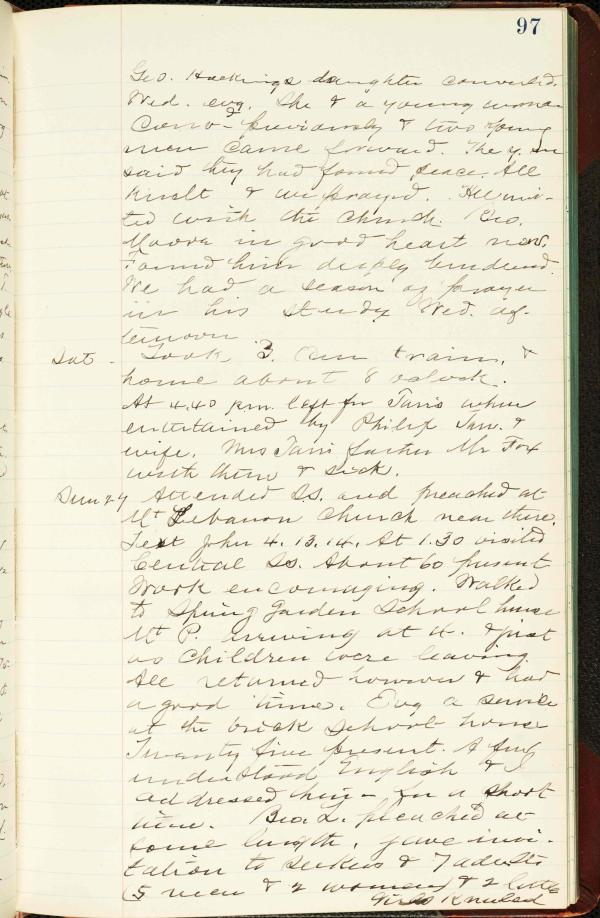 97
Geo. Hockings daughter converted
Wed. evg. She & a young woman
Conv-d previously & two young
men came forward. The y. m
said they had found peace. All
knelt & we prayed. All uni-
ted with the Church. Bro.
Moore in good heart now.
Found him deeply burdened.
We had a season of prayer
in his study Wed. af-
ternoon.
Sat - Took 3. am train, &
home about 8 oclock.
At 4.40 pm. left for Tanis where
entertained by Philip &
wife. Mrs Tanis father Mr Fox
with them & sick.
Sun 24 Attended S.S. and preached at
Mt Lebanon Church near there.
Text John 4. 13. 14. At 1.30 visited
Central SS. About 60 present.
Work encouraging. Walked
to Spring Garden School house
Mt P. arriving at 4. & just
as Children were leaving
All returned however & had
a good time. Evg a service
at the brick school house
Twenty five present. A few
understood English & I
addressed them for a short
time. Bro. L. preached at
some length, gave invi-
tation to seekers & 7 adults
(5 men & 2 women) & 2 little
girls kneeled